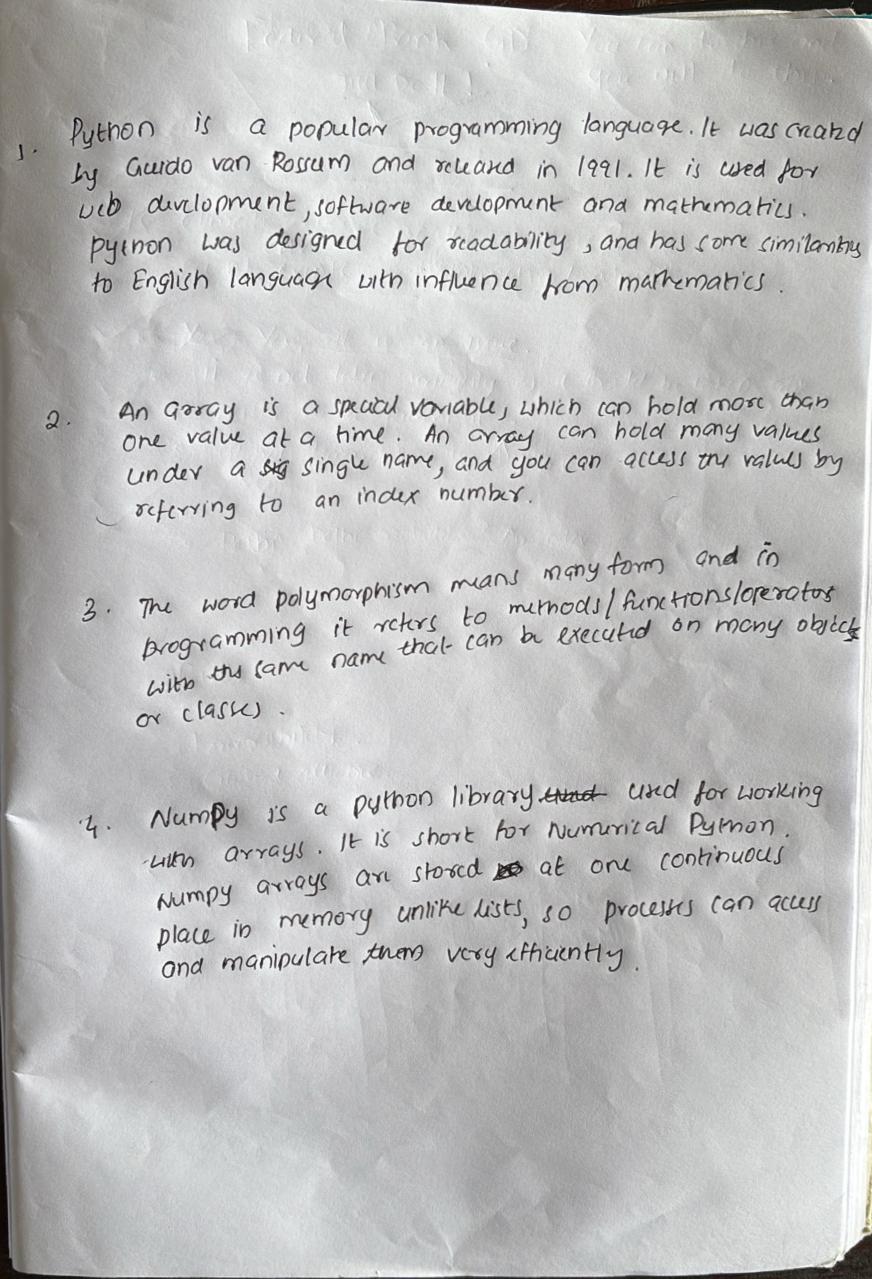 1. Python is a popular programming language. It was created
by Guido van Rossum and released in 1991. It is used for
web development, software development and mathematics.
Python was designed for readability, and has some similarities
to English language with influence from mathematics.
2. An array is a special variable, which can hold more than
one value at a time. An array can hold many values
under a single name, and you can access the values by
referring to an index number.
3. The word polymorphism means many form and in
programming it refers to methods/functions/operators
with the same name that can be executed on many objects
or classes.
4. NumPy is a python library used for working
with arrays. It is short for Numerical Python.
Numpy arrays are stored at one continuous
place in memory unlike lists, so processes can access
and manipulate them very efficiently.